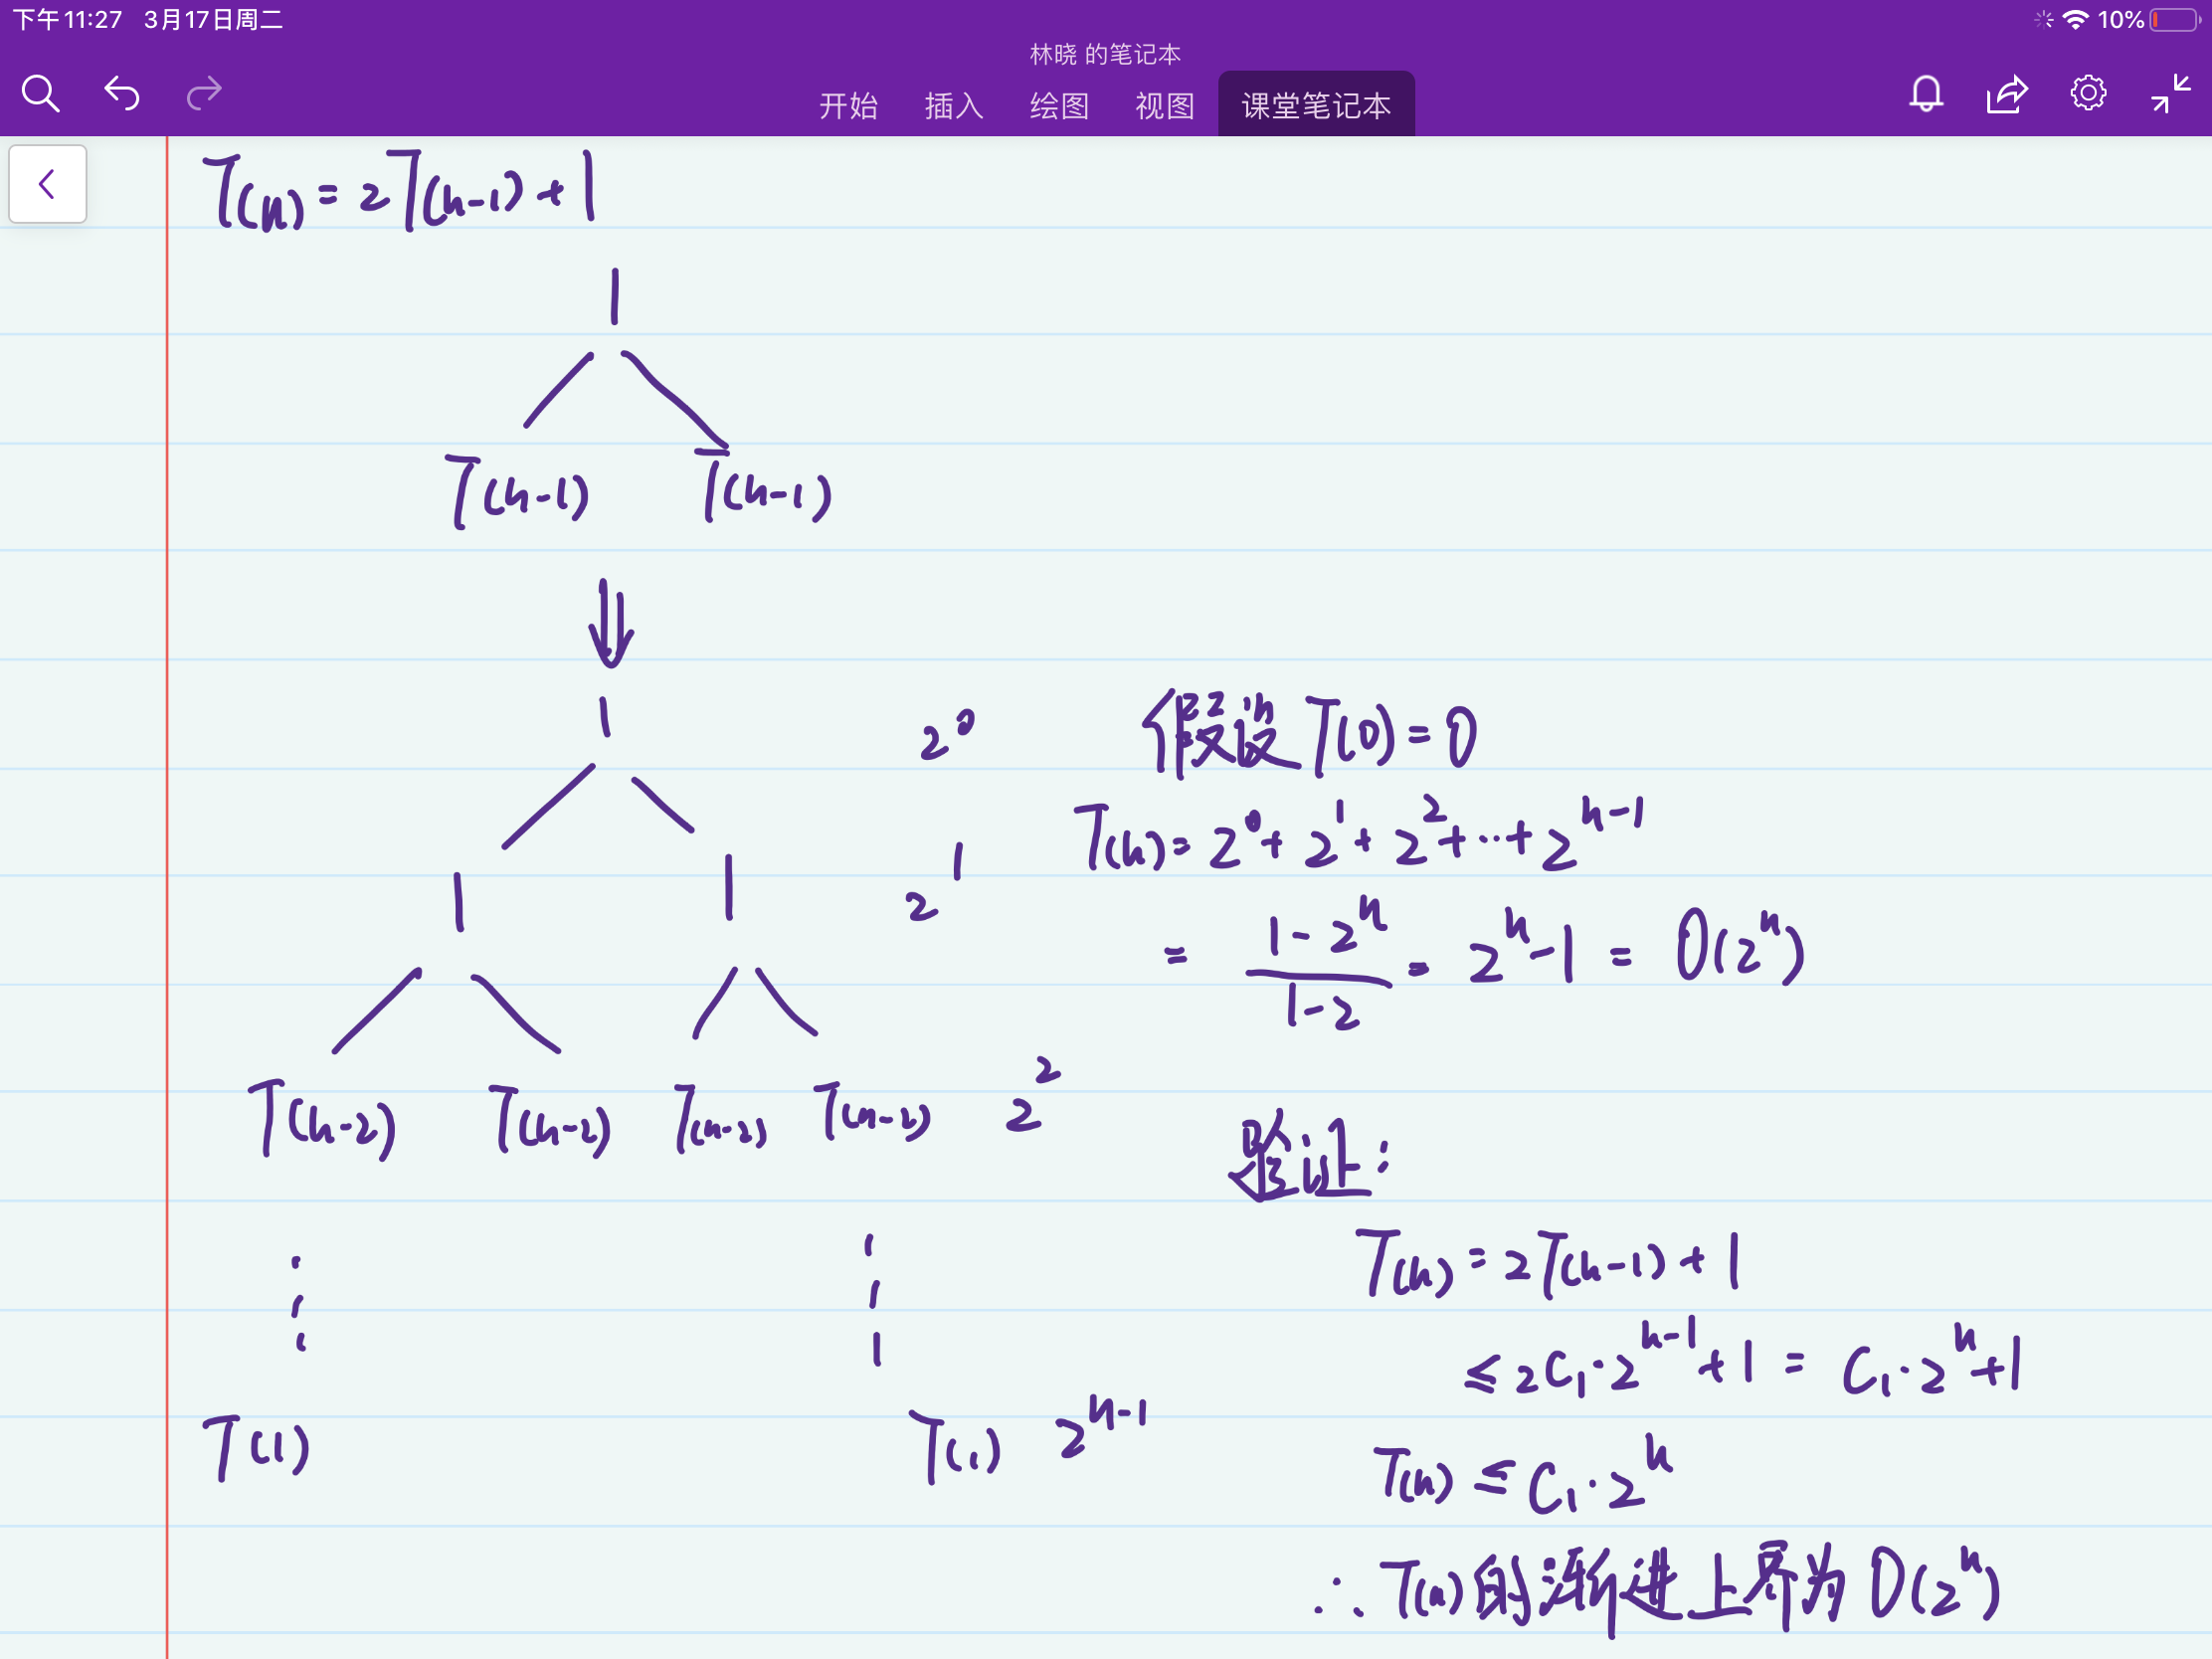 下午11:27 3月17日周二
10%
林晓 的笔记本
开始 插入 绘图 视图 课堂笔记本
T(n) = 2T(n-1) + 1
1
T(n-1) T(n-1)
⇓
1 2^0
1 1 2^1
T(n-2) T(n-2) T(n-2) T(n-2) 2^2
⋮ ⋮
T(1) T(1) 2^{n-1}
假设 T(0) = 0
T(n) = 2^0 + 2^1 + 2^2 + ··· + 2^{n-1}
= \frac{1-2^n}{1-2} = 2^n - 1 = O(2^n)
验证:
T(n) = 2T(n-1) + 1
≤ 2C_1·2^{n-1} + 1 = C_1·2^n + 1
T(n) ≤ C_1·2^n
∴ T(n) 的渐进上界为 O(2^n)